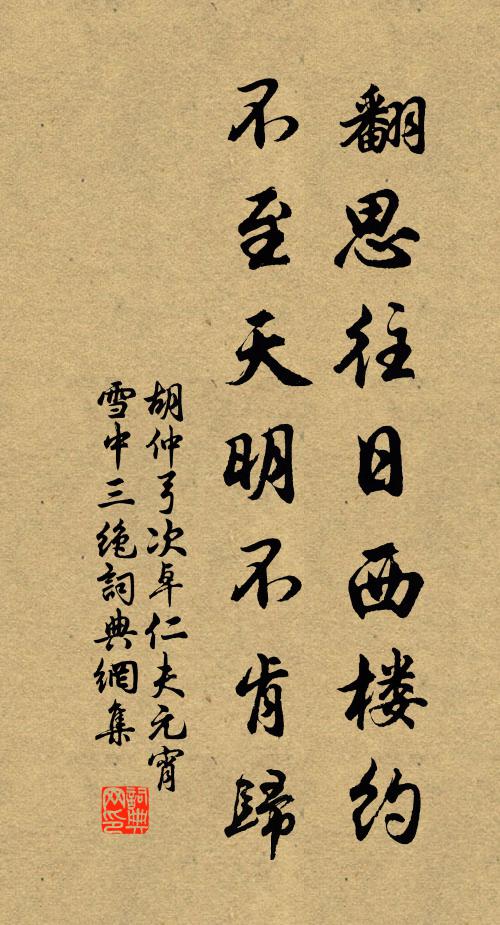 翻思往日西楼约
不至天明不肯歸
胡仲弓次卓仁夫元宵
雪中三絶詞典網集
詞典网印